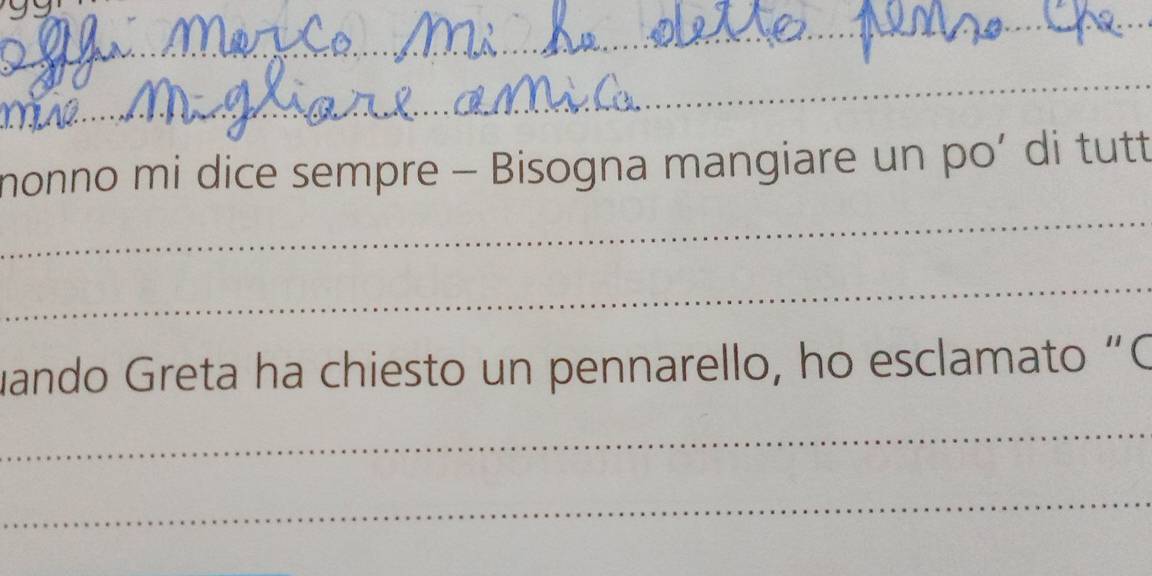 oggi marco mi ha detto penso che
mio migliare amica
nonno mi dice sempre – Bisogna mangiare un po’ di tutt
uando Greta ha chiesto un pennarello, ho esclamato “C